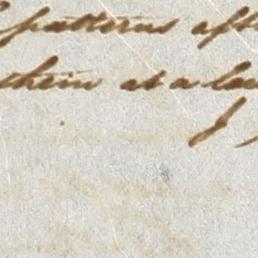 patterns aft
them at a la